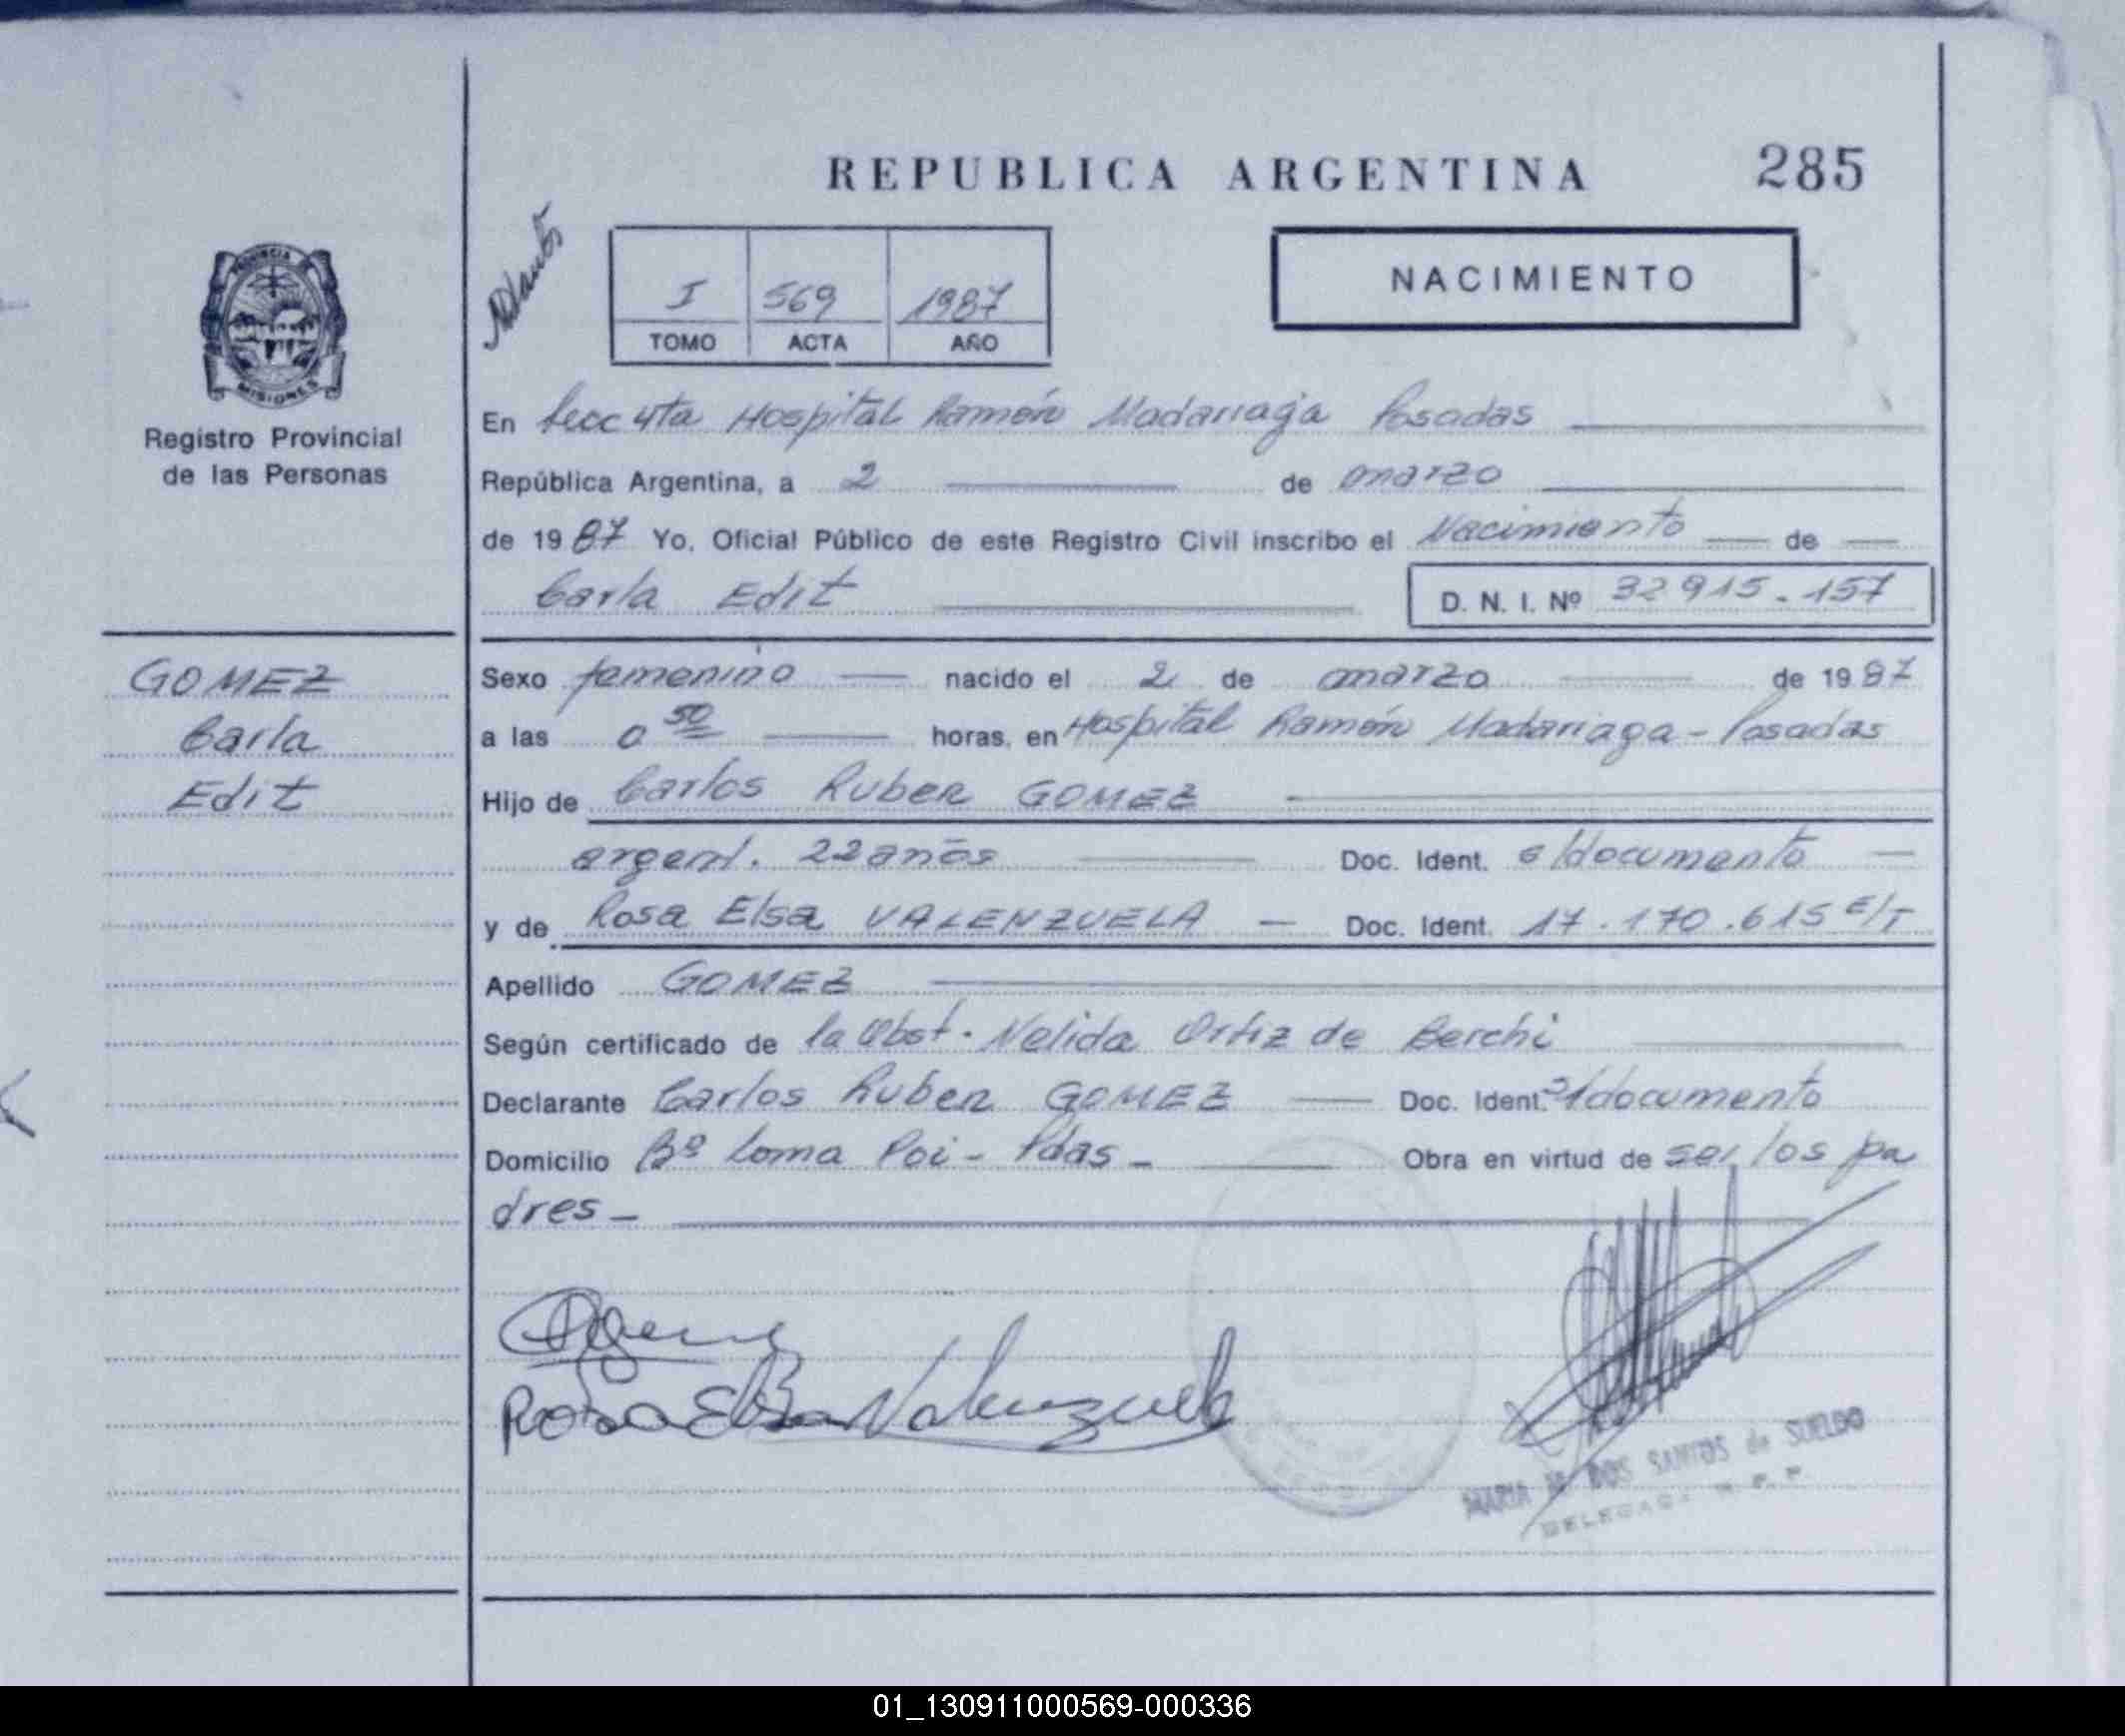 REPUBLICA ARGENTINA 285
PROVINCIA
MISIONES
Registro Provincial
de las Personas
I 569 1987
TOMO ACTA AÑO
NACIMIENTO
En Secc 4ta Hospital Ramón Madariaga Posadas
República Argentina, a 2 de marzo
de 1987 Yo, Oficial Público de este Registro Civil inscribo el Nacimiento de
Carla Edit D. N. I. Nº 32 915.157
GOMEZ
Carla
Edit
Sexo femenino nacido el 2 de marzo de 1987
a las 0 50 horas, en Hospital Ramón Madariaga - Posadas
Hijo de Carlos Ruben GOMEZ
argent. 22 años Doc. Ident. documento
y de Rosa Elsa VALENZUELA Doc. Ident. 17.170.615 E/T
Apellido GOMEZ
Según certificado de la Obst. Nelida Ortiz de Berchi
Declarante Carlos Ruben GOMEZ Doc. Ident. documento
Domicilio Bº Loma Poi - Pdas - Obra en virtud de ser los pa
dres -
Rosa Elsa Valenzuela
MARIA DOS SANTOS de SUELDO
DELEGADA R. P. P.
01_130911000569-000336